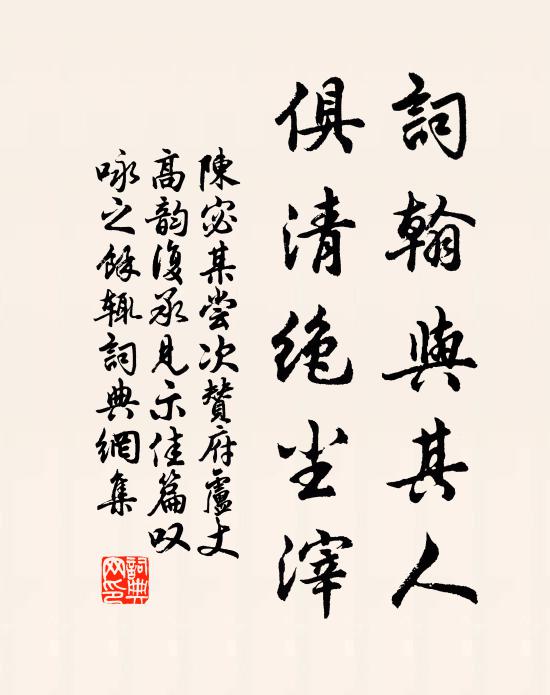 詞翰與其人
俱清絶尘滓
陳宓某嘗次贊府蘆丈
高韵復承見示佳篇叹
咏之餘輒詞典網集
詞典
网印